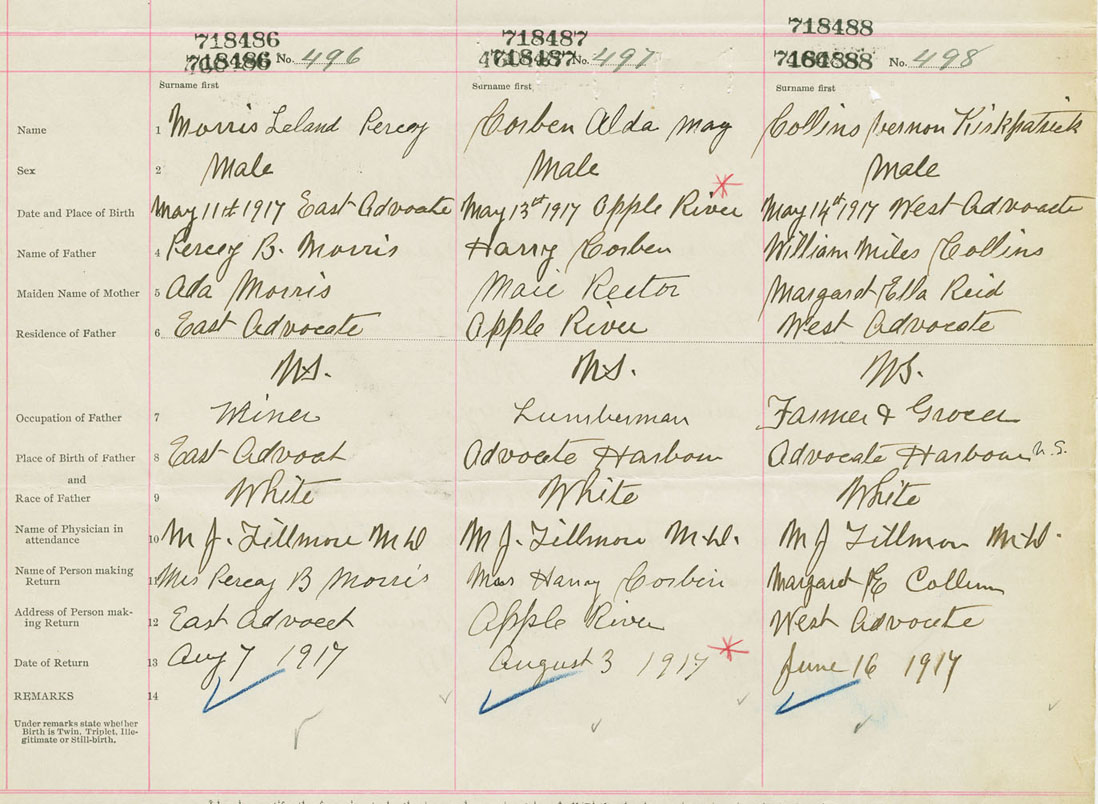 718486 718487 718488
718486 No. 496 718487 No. 497 No. 498
Surname first Surname first Surname first
Name 1 Morris Leland Percey Corben Alda May Collins Vernon Kirkpatrick
Sex 2 Male Male Male
Date and Place of Birth May 11st 1917 East Advocate May 13st 1917 Apple River May 14st 1917 West Advocate
Name of Father 4 Percey B. Morris Harry Corben William Miles Collins
Maiden Name of Mother 5 Ada Morris Maie Rector Margaret Ella Reid
Residence of Father 6 East Advocate Apple River West Advocate
N.S. N.S. N.S.
Occupation of Father 7 Miner Lumberman Farmer & Grocer
Place of Birth of Father 8 East Advocat Advocate Harbour Advocate Harbour N.S.
and
Race of Father 9 White White White
Name of Physician in
attendance 10 M J. Fillmore M.D. M J. Fillmore M.D. M J Fillmore M.D.
Name of Person making
Return 11 Mrs Percey B Morris Mrs Harry Corbin Margaret E Collins
Address of Person mak-
ing Return 12 East Advocet Apple River West Advocate
Date of Return 13 Aug 7 1917 August 3 1917 June 16 1917
REMARKS 14
Under remarks state whether
Birth is Twin, Triplet, Ille-
gitimate or Still-birth.